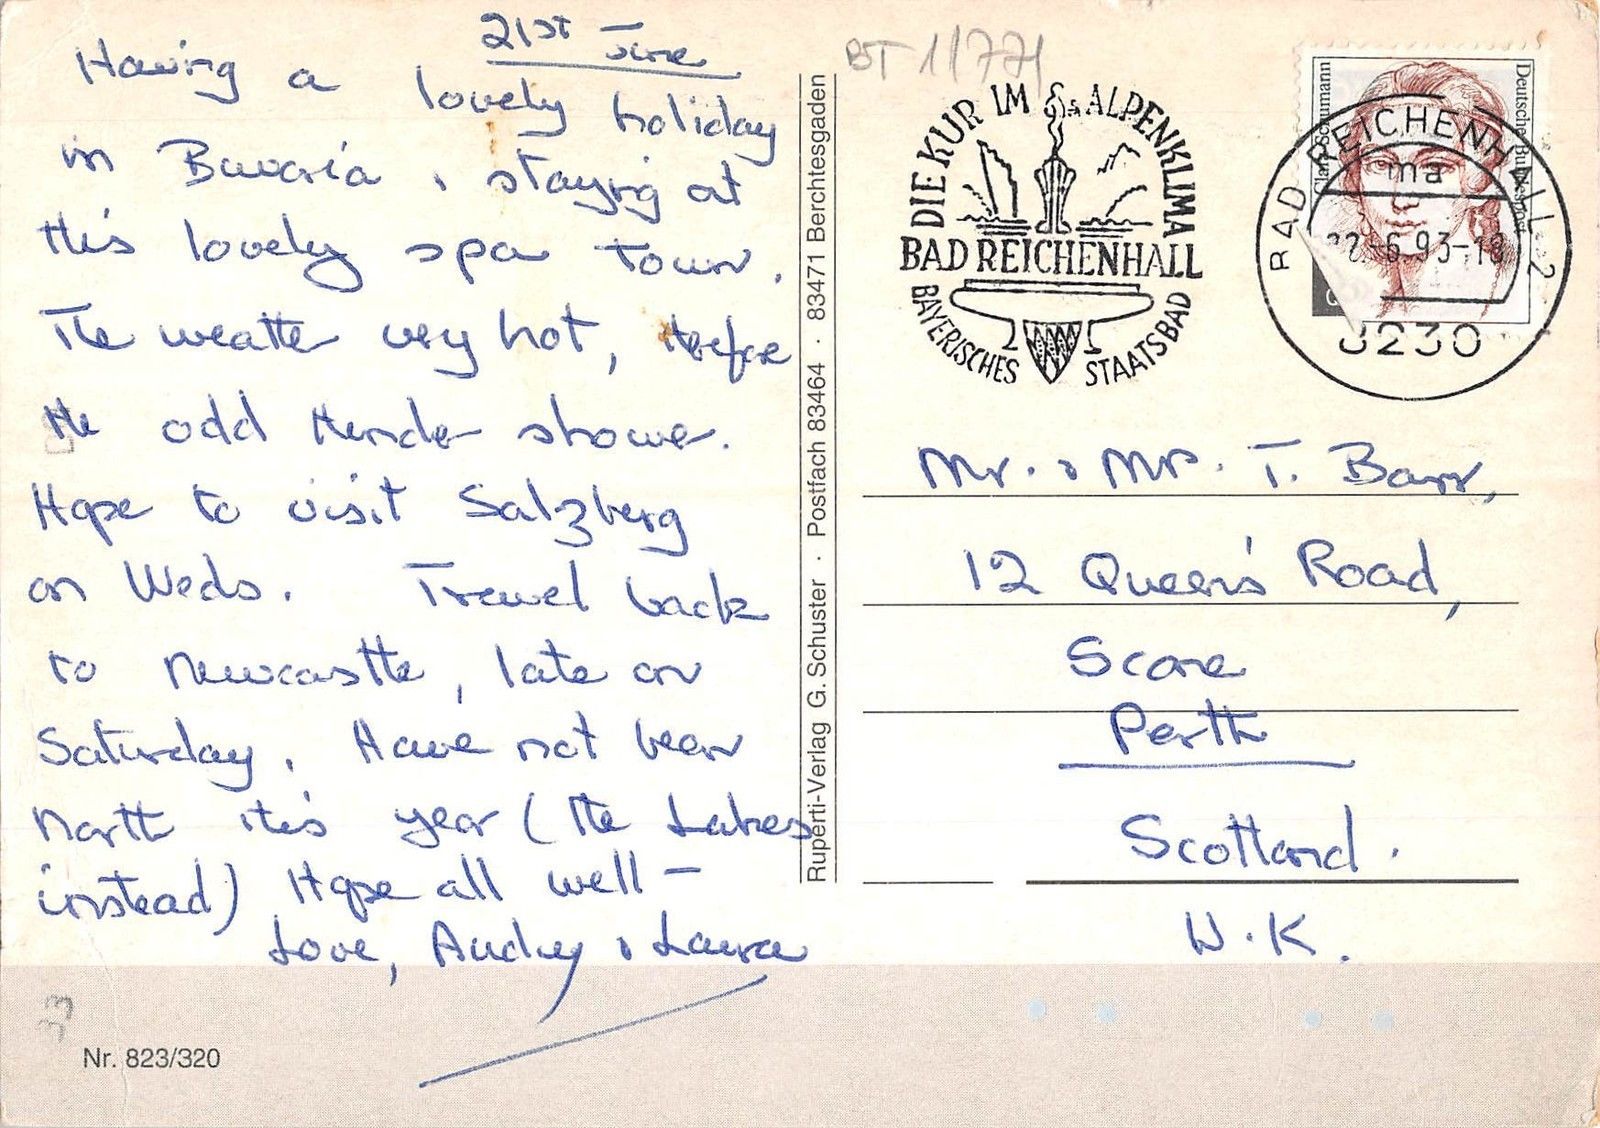 21st June
Having a lovely holiday
in Bavaria, staying at
this lovely spa town.
The weather very hot, therefore
the odd thunder shower.
Hope to visit Salzberg
on Weds. Travel back
to Newcastle, late on
Saturday. Have not been
North this year (the Lakes
instead) Hope all well –
Love, Audrey & Laura
Nr. 823/320
Ruperti-Verlag G. Schuster · Postfach 83464 · 83471 Berchtesgaden
BT 11771
DIE KUR IM ALPENKLIMA
BAD REICHENHALL
BAYERISCHES STAATSBAD
Deutsche Bundespost
Clara Schumann
BAD REICHENHALL 2
ma
22.-6.93-18
8230
Mr. & Mrs. T. Barr,
12 Queen's Road,
Scone
Perth
Scotland.
U.K.